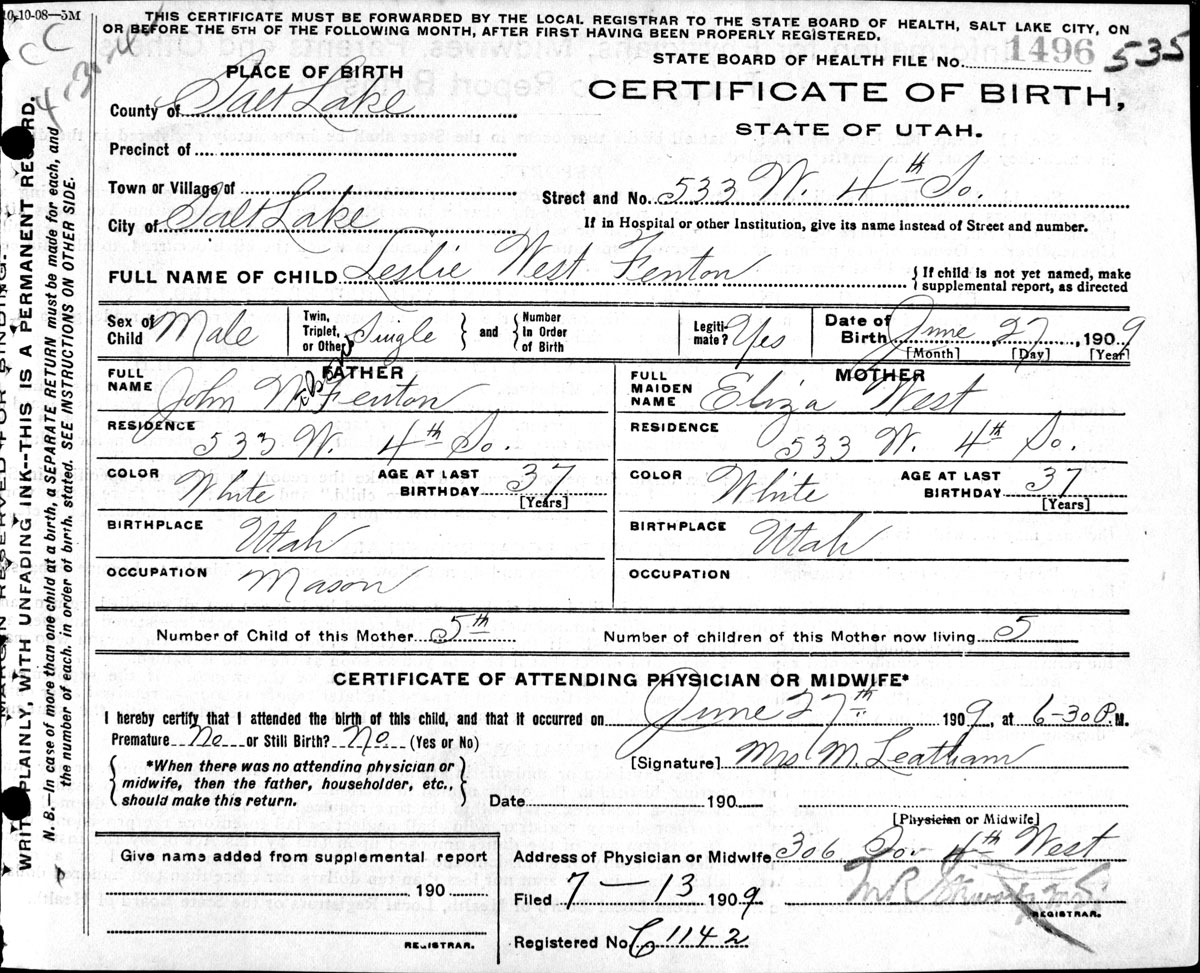 10,10-08—5M
THIS CERTIFICATE MUST BE FORWARDED BY THE LOCAL REGISTRAR TO THE STATE BOARD OF HEALTH, SALT LAKE CITY, ON
OR BEFORE THE 5TH OF THE FOLLOWING MONTH, AFTER FIRST HAVING BEEN PROPERLY REGISTERED.
STATE BOARD OF HEALTH FILE No. 1496 535
PLACE OF BIRTH
CERTIFICATE OF BIRTH,
STATE OF UTAH.
County of Salt Lake
Precinct of
Town or Village of
Street and No. 533 W. 4th So.
City of Salt Lake
If in Hospital or other Institution, give its name instead of Street and number.
FULL NAME OF CHILD Leslie West Fenton
{If child is not yet named, make supplemental report, as directed
Sex of Child Male
Twin, Triplet, or Other Single } and { Number in Order of Birth
Legitimate? Yes
Date of Birth June, 27, 1909
[Month] [Day] [Year]
FATHER
FULL NAME John W. Fenton
RESIDENCE 533 W. 4th So.
COLOR White
AGE AT LAST BIRTHDAY 37 [Years]
BIRTHPLACE Utah
OCCUPATION Mason
MOTHER
FULL MAIDEN NAME Eliza West
RESIDENCE 533 W. 4th So.
COLOR White
AGE AT LAST BIRTHDAY 37 [Years]
BIRTHPLACE Utah
OCCUPATION
Number of Child of this Mother 5th
Number of children of this Mother now living 5
CERTIFICATE OF ATTENDING PHYSICIAN OR MIDWIFE*
I hereby certify that I attended the birth of this child, and that it occurred on June 27th 1909, at 6-30 P.M.
Premature No or Still Birth? No (Yes or No)
[Signature] Mrs M. Leatham
{ *When there was no attending physician or midwife, then the father, householder, etc., should make this return. }
Date 190
[Physician or Midwife]
Give name added from supplemental report
190
REGISTRAR.
Address of Physician or Midwife, 306 So. 4th West
Filed 7—13 1909
REGISTRAR.
Registered No. C 1142
MARGIN RESERVED FOR BINDING.
WRITE PLAINLY, WITH UNFADING INK--THIS IS A PERMANENT RECORD.
N. B.—In case of more than one child at a birth, a SEPARATE RETURN must be made for each, and
the number of each, in order of birth, stated. SEE INSTRUCTIONS ON OTHER SIDE.